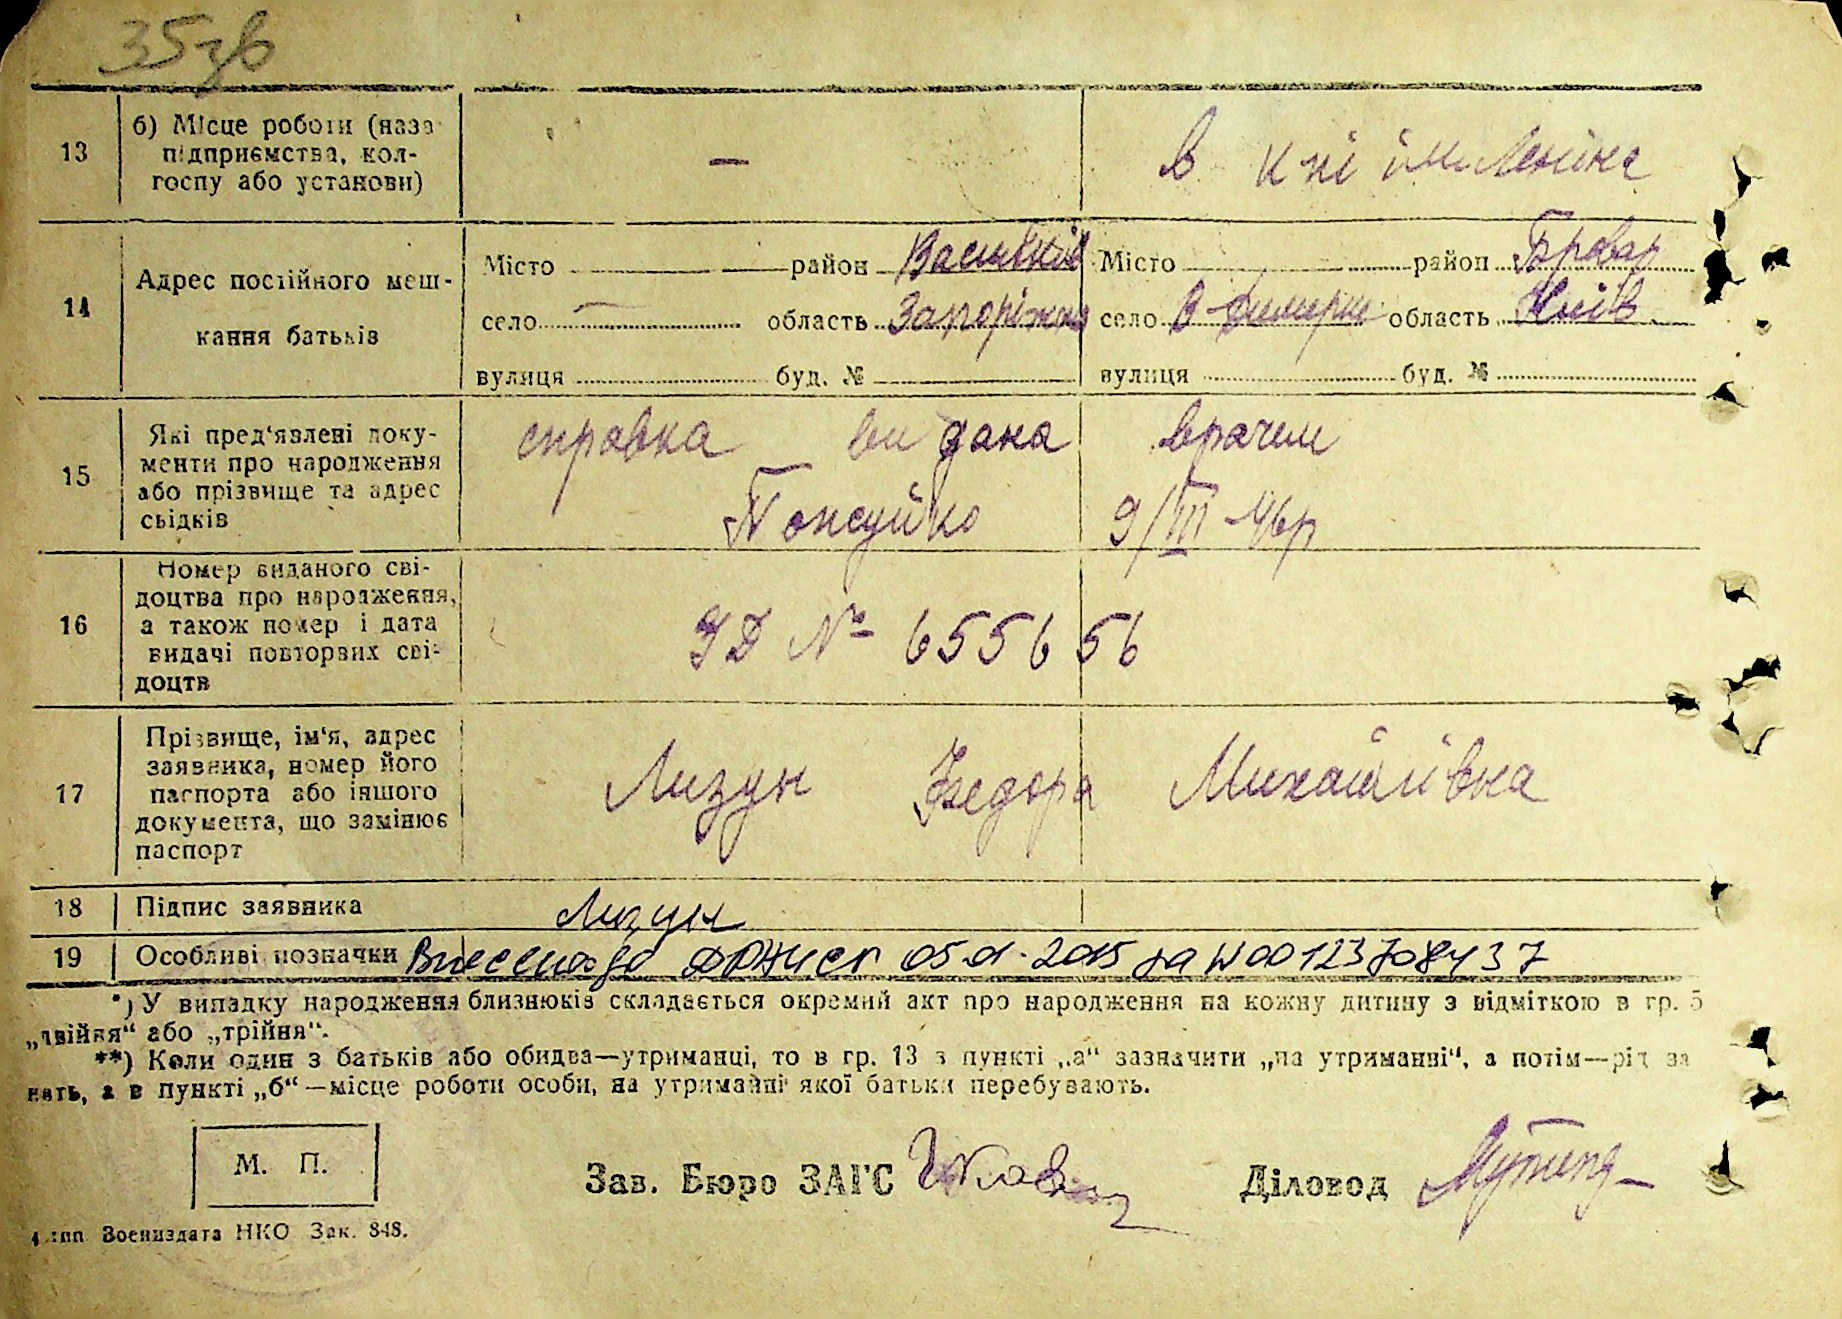 35 зв
13 б) Місце роботи (назва підприємства, колгоспу або установи) — в к-пі ім. Леніна
14 Адрес постійного мешкання батьків
Місто район Васильків Місто район Бровар
село — область Запоріжжя село В Димерка область Київ
вулиця буд. № вулиця буд. №
15 Які пред'явлені документи про народження або прізвище та адрес свідків
справка видана врачем
9/III-46р
16 Номер виданого свідоцтва про народження, а також номер і дата видачі повторних свідоцтв
УД № 655656
17 Прізвище, ім'я, адрес заявника, номер його паспорта або іншого документа, що замінює паспорт
Лизун Федора Михайлівна
18 Підпис заявника Лизун
19 Особливі позначки Внесено до ДРАЦСГ 05.01.2015 за № 00123708437
*) У випадку народження близнюків складається окремий акт про народження на кожну дитину з відміткою в гр. 5
„двійня“ або „трійня“.
**) Коли один з батьків або обидва—утриманці, то в гр. 13 в пункті „а“ зазначити „на утриманні“, а потім—рід за
нять, а в пункті „б“—місце роботи особи, на утриманні якої батьки перебувають.
М. П.
Зав. Бюро ЗАГС Діловод
4 тип Воениздата НКО Зак. 848.